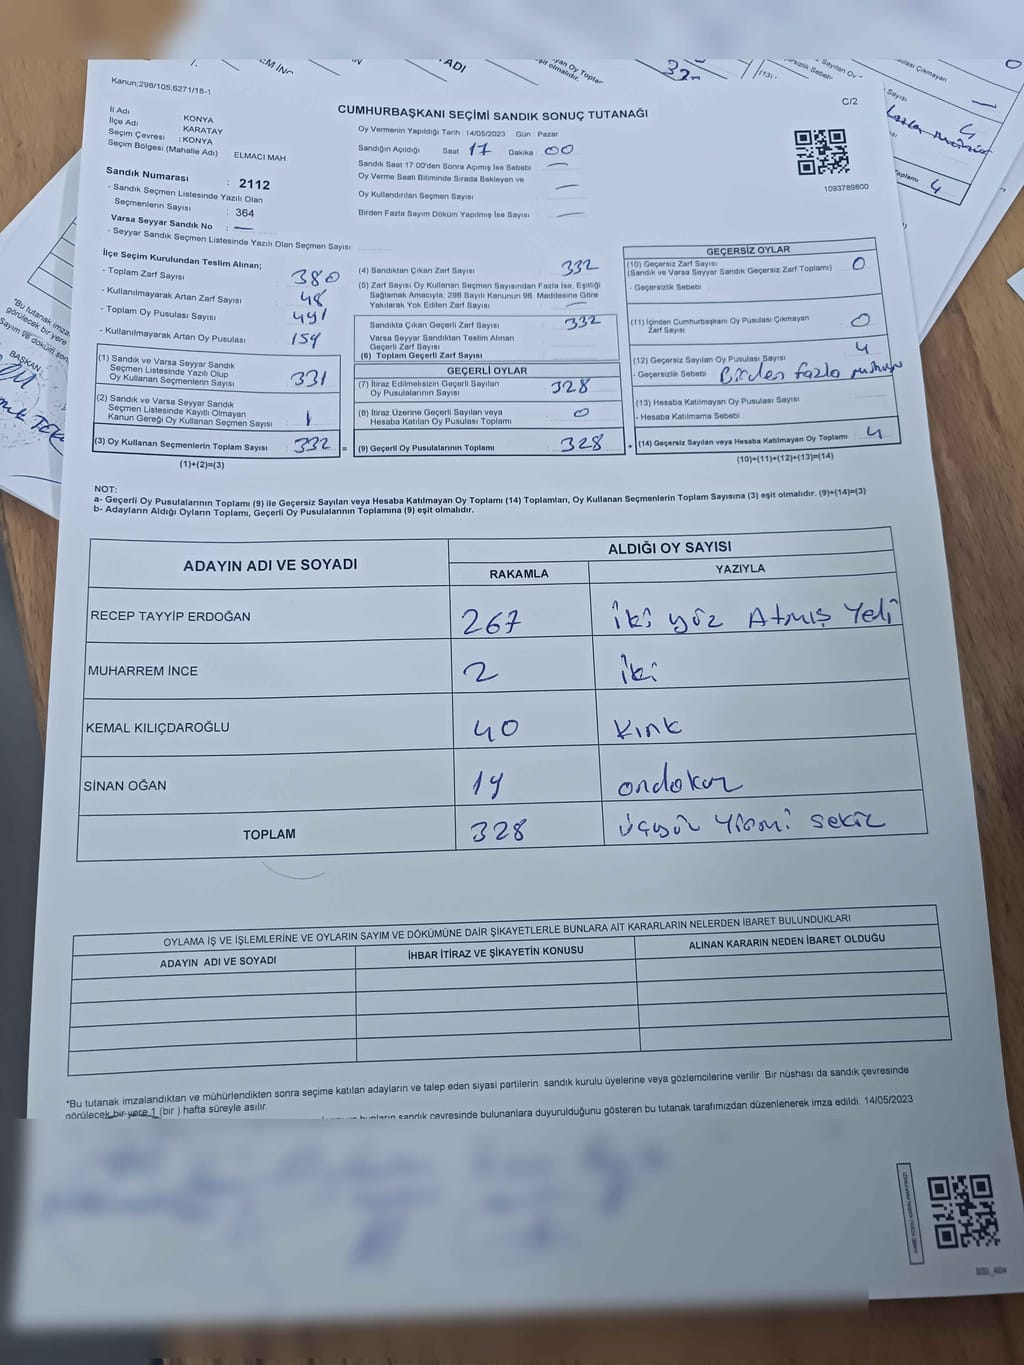 Kanun;298/105,6271/18-1
C/2
CUMHURBAŞKANI SEÇİMİ SANDIK SONUÇ TUTANAĞI
İl Adı KONYA
İlçe Adı : KARATAY
Seçim Çevresi : KONYA
Seçim Bölgesi (Mahalle Adı) ELMACI MAH.
Sandık Numarası : 2112
- Sandık Seçmen Listesinde Yazılı Olan
Seçmenlerin Sayısı : 364
Varsa Seyyar Sandık No : —
- Seyyar Sandık Seçmen Listesinde Yazılı Olan Seçmen Sayısı
Oy Vermenin Yapıldığı Tarih : 14/05/2023 Gün : Pazar
Sandığın Açıldığı Saat 17 Dakika 00
Sandık Saat 17:00'den Sonra Açımış İse Sebebi —
Oy Verme Saati Bitiminde Sırada Bekleyen ve
Oy Kullandırılan Seçmen Sayısı —
Birden Fazla Sayım Döküm Yapılmış İse Sayısı —
1093789800
İlçe Seçim Kurulundan Teslim Alınan;
- Toplam Zarf Sayısı 380
- Kullanılmayarak Artan Zarf Sayısı 48
- Toplam Oy Pusulası Sayısı 491
- Kullanılmayarak Artan Oy Pusulası 159
(1) Sandık ve Varsa Seyyar Sandık
Seçmen Listesinde Yazılı Olup
Oy Kullanan Seçmenlerin Sayısı 331
(2) Sandık ve Varsa Seyyar Sandık
Seçmen Listesinde Kayıtlı Olmayan
Kanun Gereği Oy Kullanan Seçmen Sayısı 1
(3) Oy Kullanan Seçmenlerin Toplam Sayısı 332 =
(1)+(2)=(3)
(4) Sandıktan Çıkan Zarf Sayısı 332
(5) Zarf Sayısı Oy Kullanan Seçmen Sayısından Fazla İse, Eşitliği
Sağlamak Amacıyla, 298 Sayılı Kanunun 98. Maddesine Göre
Yakılarak Yok Edilen Zarf Sayısı —
Sandıkta Çıkan Geçerli Zarf Sayısı 332
Varsa Seyyar Sandıktan Teslim Alınan
Geçerli Zarf Sayısı
(6) Toplam Geçerli Zarf Sayısı
GEÇERLİ OYLAR
(7) İtiraz Edilmeksizin Geçerli Sayılan
Oy Pusulalarının Sayısı 328
(8) İtiraz Üzerine Geçerli Sayılan veya
Hesaba Katılan Oy Pusulası Toplamı 0
(9) Geçerli Oy Pusulalarının Toplamı 328 +
GEÇERSİZ OYLAR
(10) Geçersiz Zarf Sayısı 0
(Sandık ve Varsa Seyyar Sandık Geçersiz Zarf Toplamı)
- Geçersizlik Sebebi
(11) İçinden Cumhurbaşkanı Oy Pusulası Çıkmayan
Zarf Sayısı 0
(12) Geçersiz Sayılan Oy Pusulası Sayısı 4
- Geçersizlik Sebebi Birden fazla
(13) Hesaba Katılmayan Oy Pusulası Sayısı
- Hesaba Katılmama Sebebi
(14) Geçersiz Sayılan veya Hesaba Katılmayan Oy Toplamı 4
(10)+(11)+(12)+(13)=(14)
NOT:
a- Geçerli Oy Pusulalarının Toplamı (9) ile Geçersiz Sayılan veya Hesaba Katılmayan Oy Toplamı (14) Toplamları, Oy Kullanan Seçmenlerin Toplam Sayısına (3) eşit olmalıdır. (9)+(14)=(3)
b- Adayların Aldığı Oyların Toplamı, Geçerli Oy Pusulalarının Toplamına (9) eşit olmalıdır.
ADAYIN ADI VE SOYADI ALDIĞI OY SAYISI
RAKAMLA YAZIYLA
RECEP TAYYİP ERDOĞAN 267 iki yüz Atmış Yedi
MUHARREM İNCE 2 iki
KEMAL KILIÇDAROĞLU 40 Kırk
SİNAN OĞAN 19 ondokuz
TOPLAM 328 üçyüz Yirmi sekiz
OYLAMA İŞ VE İŞLEMLERİNE VE OYLARIN SAYIM VE DÖKÜMÜNE DAİR ŞİKAYETLERLE BUNLARA AİT KARARLARIN NELERDEN İBARET BULUNDUKLARI
ADAYIN ADI VE SOYADI İHBAR İTİRAZ VE ŞİKAYETİN KONUSU ALINAN KARARIN NEDEN İBARET OLDUĞU
*Bu tutanak imzalandıktan ve mühürlendikten sonra seçime katılan adayların ve talep eden siyasi partilerin sandık kurulu üyelerine veya gözlemcilerine verilir Bir nüshası da sandık çevresinde
görülecek bir yere 1 (bir ) hafta süreyle asılır.
sandık çevresinde bulunanlara duyurulduğunu gösteren bu tutanak tarafımızdan düzenlenerek imza edildi. 14/05/2023